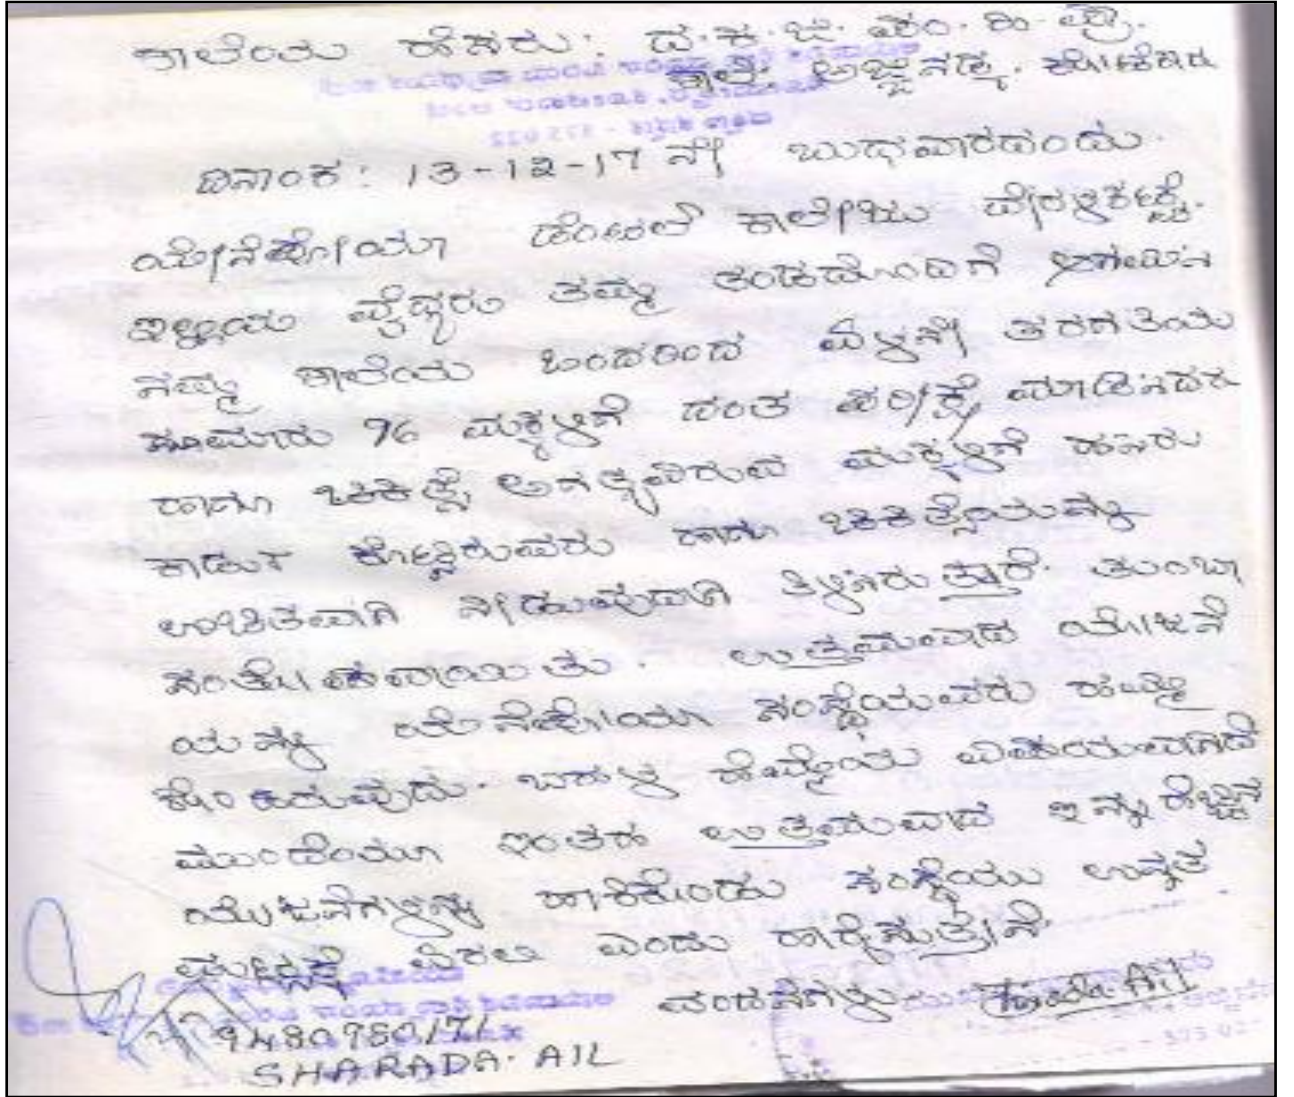 ಶಾಲೆಯ ಹೆಸರು: ದ.ಕ.ಜಿ.ಪಂ.ಹಿ.ಪ್ರಾ.
ಶಾಲೆ ಅಜ್ಜಿನಡ್ಕ. ಕೋಟೆಕಾರು
ದಿನಾಂಕ: 13-12-17 ನೇ ಬುಧವಾರದಂದು.
ಯೇನೆಪೋಯಾ ಡೆಂಟಲ್ ಕಾಲೇಜು ದೇರಳಕಟ್ಟೆ.
ಇಲ್ಲಿಯ ವೈದ್ಯರು ತಮ್ಮ ತಂಡದೊಂದಿಗೆ ಆಗಮಿಸಿ
ನಮ್ಮ ಶಾಲೆಯ ಒಂದರಿಂದ ಏಳನೇ ತರಗತಿಯ
ಸುಮಾರು 96 ಮಕ್ಕಳಿಗೆ ದಂತ ಪರೀಕ್ಷೆ ಮಾಡಿಸಿದರು
ಹಾಗೂ ಚಿಕಿತ್ಸೆ ಅಗತ್ಯವಿರುವ ಮಕ್ಕಳಿಗೆ ಹಸಿರು
ಕಾರ್ಡು ಕೊಟ್ಟಿರುವರು ಹಾಗೂ ಚಿಕಿತ್ಸೆಯನ್ನು
ಉಚಿತವಾಗಿ ನೀಡುವುದಾಗಿ ತಿಳಿಸಿರುತ್ತಾರೆ. ತುಂಬಾ
ಸಂತೋಷವಾಯಿತು. ಉತ್ತಮವಾದ ಯೋಜನೆ
ಯನ್ನು ಯೇನೆಪೋಯಾ ಸಂಸ್ಥೆಯವರು ಹಮ್ಮಿ
ಕೊಂಡಿರುವುದು. ಬಹಳ ಹೆಮ್ಮೆಯ ವಿಷಯವಾಗಿದೆ
ಮುಂದೆಯೂ ಇಂತಹ ಉತ್ತಮವಾದ ಇನ್ನೂ ಹೆಚ್ಚಿನ
ಯೋಜನೆಗಳನ್ನು ಹಾಕಿಕೊಂಡು ಸಂಸ್ಥೆಯು ಉನ್ನತ
ಮಟ್ಟಕ್ಕೆ ಏರಲಿ ಎಂದು ಹಾರೈಸುತ್ತೇನೆ.
ವಂದನೆಗಳು
9480980171
SHARADA. AIL